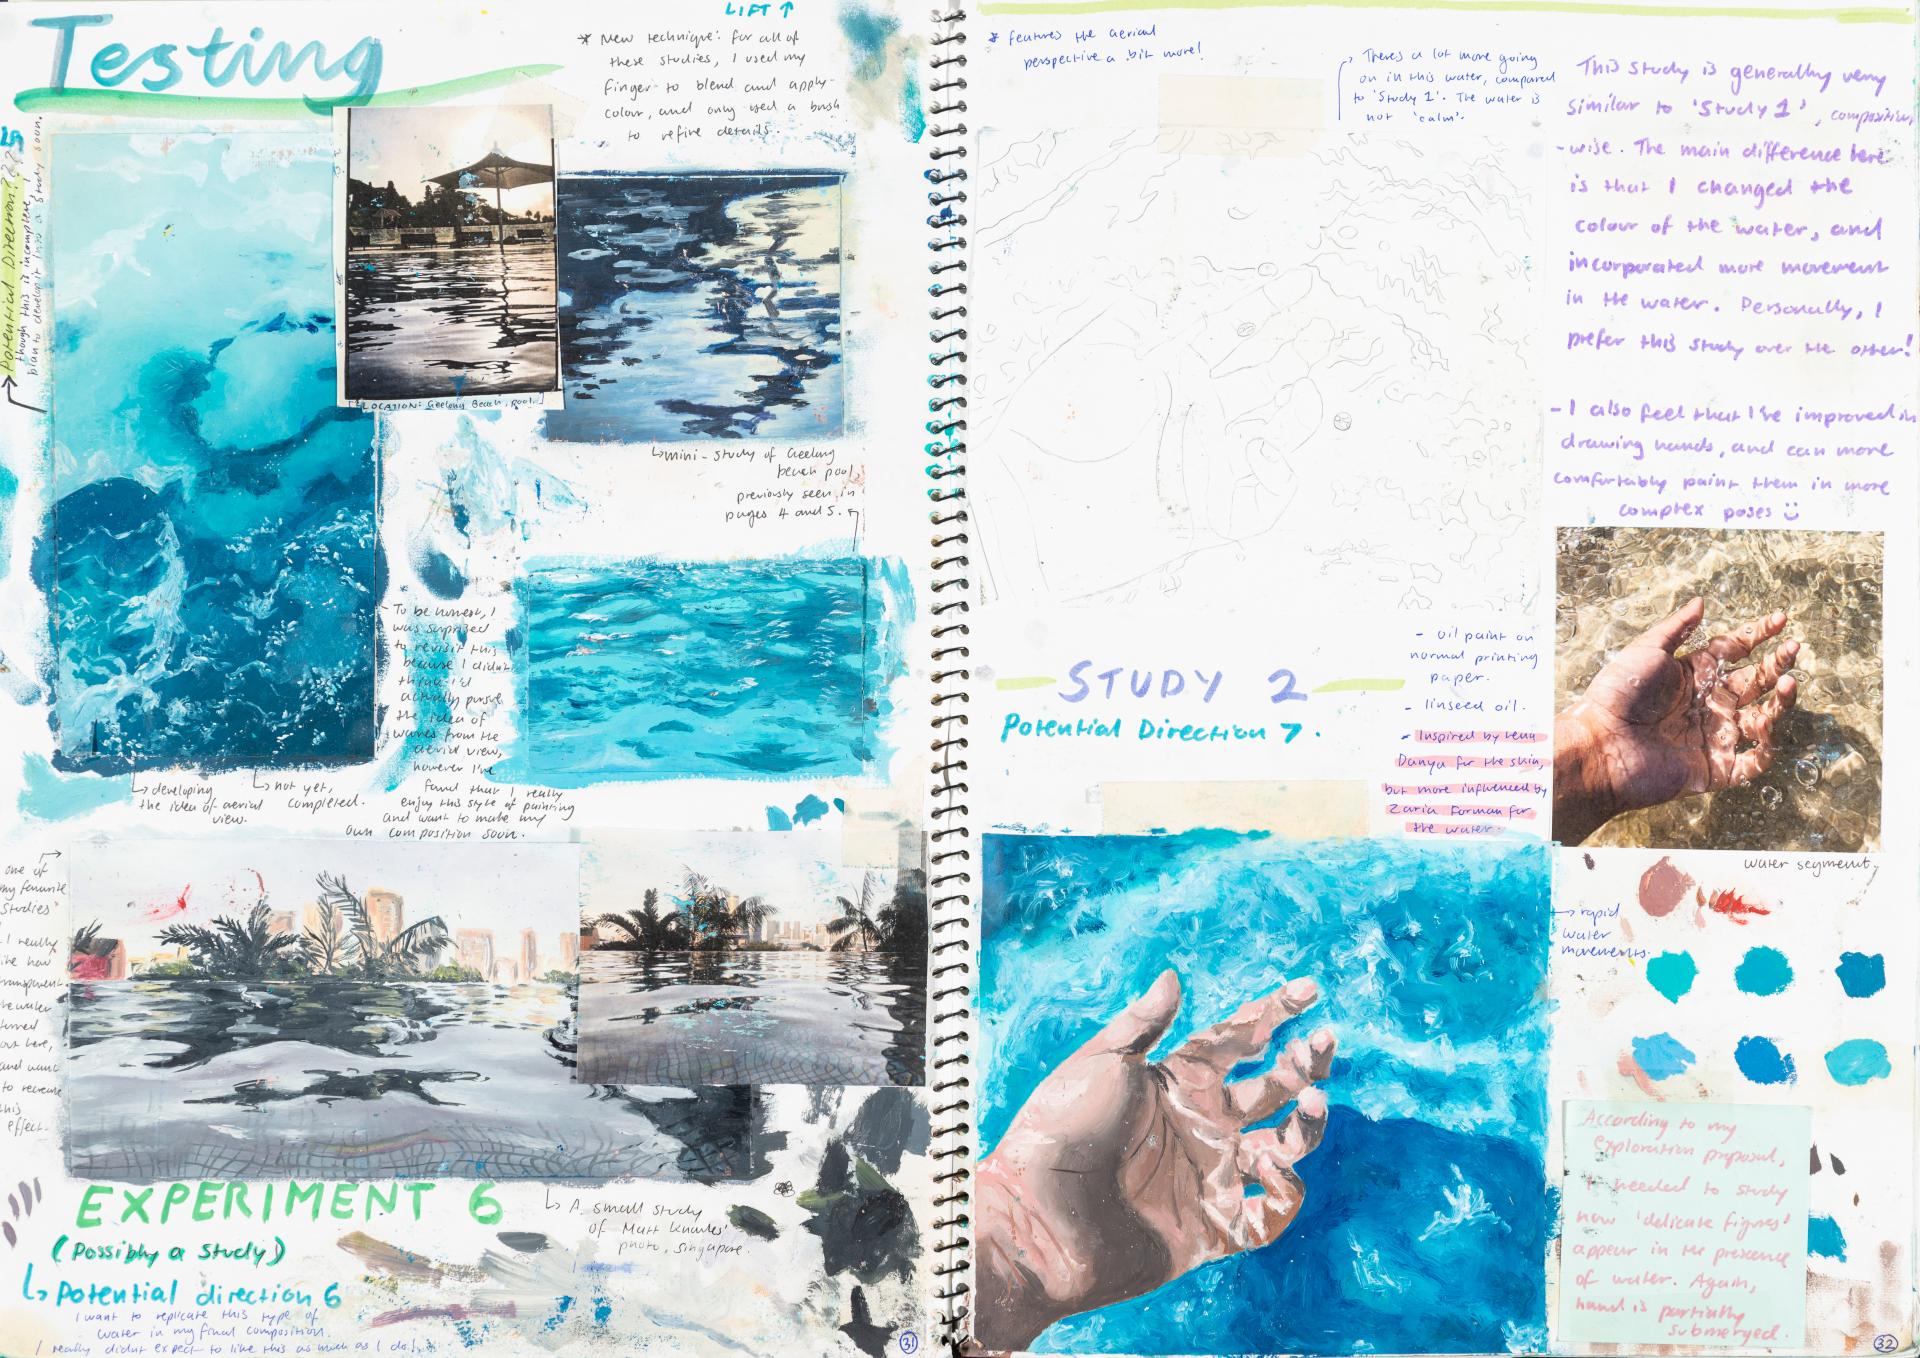 Testing
LIFT ↑
* New technique: for all of
these studies, I used my
finger to blend and apply
colour, and only used a brush
to refine details.
Potential Direction???
though this is incomplete, I
plan to develop it into a study soon.
[LOCATION: Geelong Beach, pool.]
↳ mini-study of Geelong
beach pool,
previously seen in
pages 4 and 5.
To be honest, I
was suprised
to revisit this
because I didn't
think I'd
actually pursue
the idea of
waves from the
aerial view,
however I've
found that I really
enjoy this style of painting
and want to make my
own composition soon.
↳ developing
the idea of aerial
view.
↳ not yet,
completed.
one of
my favourite
studies
I really
like how
transparent
the water
turned
out here,
and want
to recreate
this
effect.
EXPERIMENT 6
(Possibly a study)
↳ Potential direction 6
I want to replicate this type of
water in my final composition.
I really didnt expect to like this as much as I do!
↳ A small study
of Matt Knowles'
photo, Singapore.
31
* features the aerial
perspective a bit more!
There's a lot more going
on in this water, compared
to 'Study 1'. The water is
not 'calm'.
This study is generally very
similar to 'Study 1', composition
-wise. The main difference here
is that I changed the
colour of the water, and
incorporated more movement
in the water. Personally, I
prefer this study over the other!
- I also feel that I've improved in
drawing hands, and can more
comfortably paint them in more
complex poses
STUDY 2
Potential Direction 7.
- oil paint on
normal printing
paper.
- linseed oil.
- Inspired by Lena
Danya for the skin,
but more influenced by
Zaria Forman for
the water.
water segment
→ rapid
water
movements.
According to my
exploration proposal,
I needed to study
how 'delicate figures'
appear in the presence
of water. Again,
hand is partially
submerged.
32